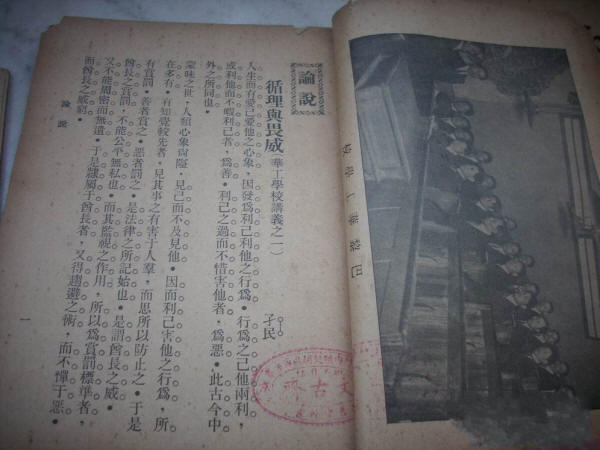 巴黎華工學校
論說
循理與畏威（華工學校講義之一） 孑民
人生而有愛己愛他之心象，因發爲利己利他之行爲。行爲之己他兩利，
或利他而不暇利己者，爲善。利己之過而不惜害他者，爲惡。此古今中
外之所同也。
蒙昧之世，人類心象尙隘，見己而不及見他。因而利己害他之行爲，所
在多有。有知覺較先者，見其事之有害于人羣，而思所以防止之。于是
有賞罰。善者賞之。惡者罰之。是法律之所託始也。是謂酋長之威。
酋長之賞罰，不能公平無私也。而其監視之作用，所以爲賞罰標準者，
又不能周密而無遺。于是隸屬于酋長者，又得趨避之術，而不憚于惡。
而酋長之威窮。
論說
一
文古齋